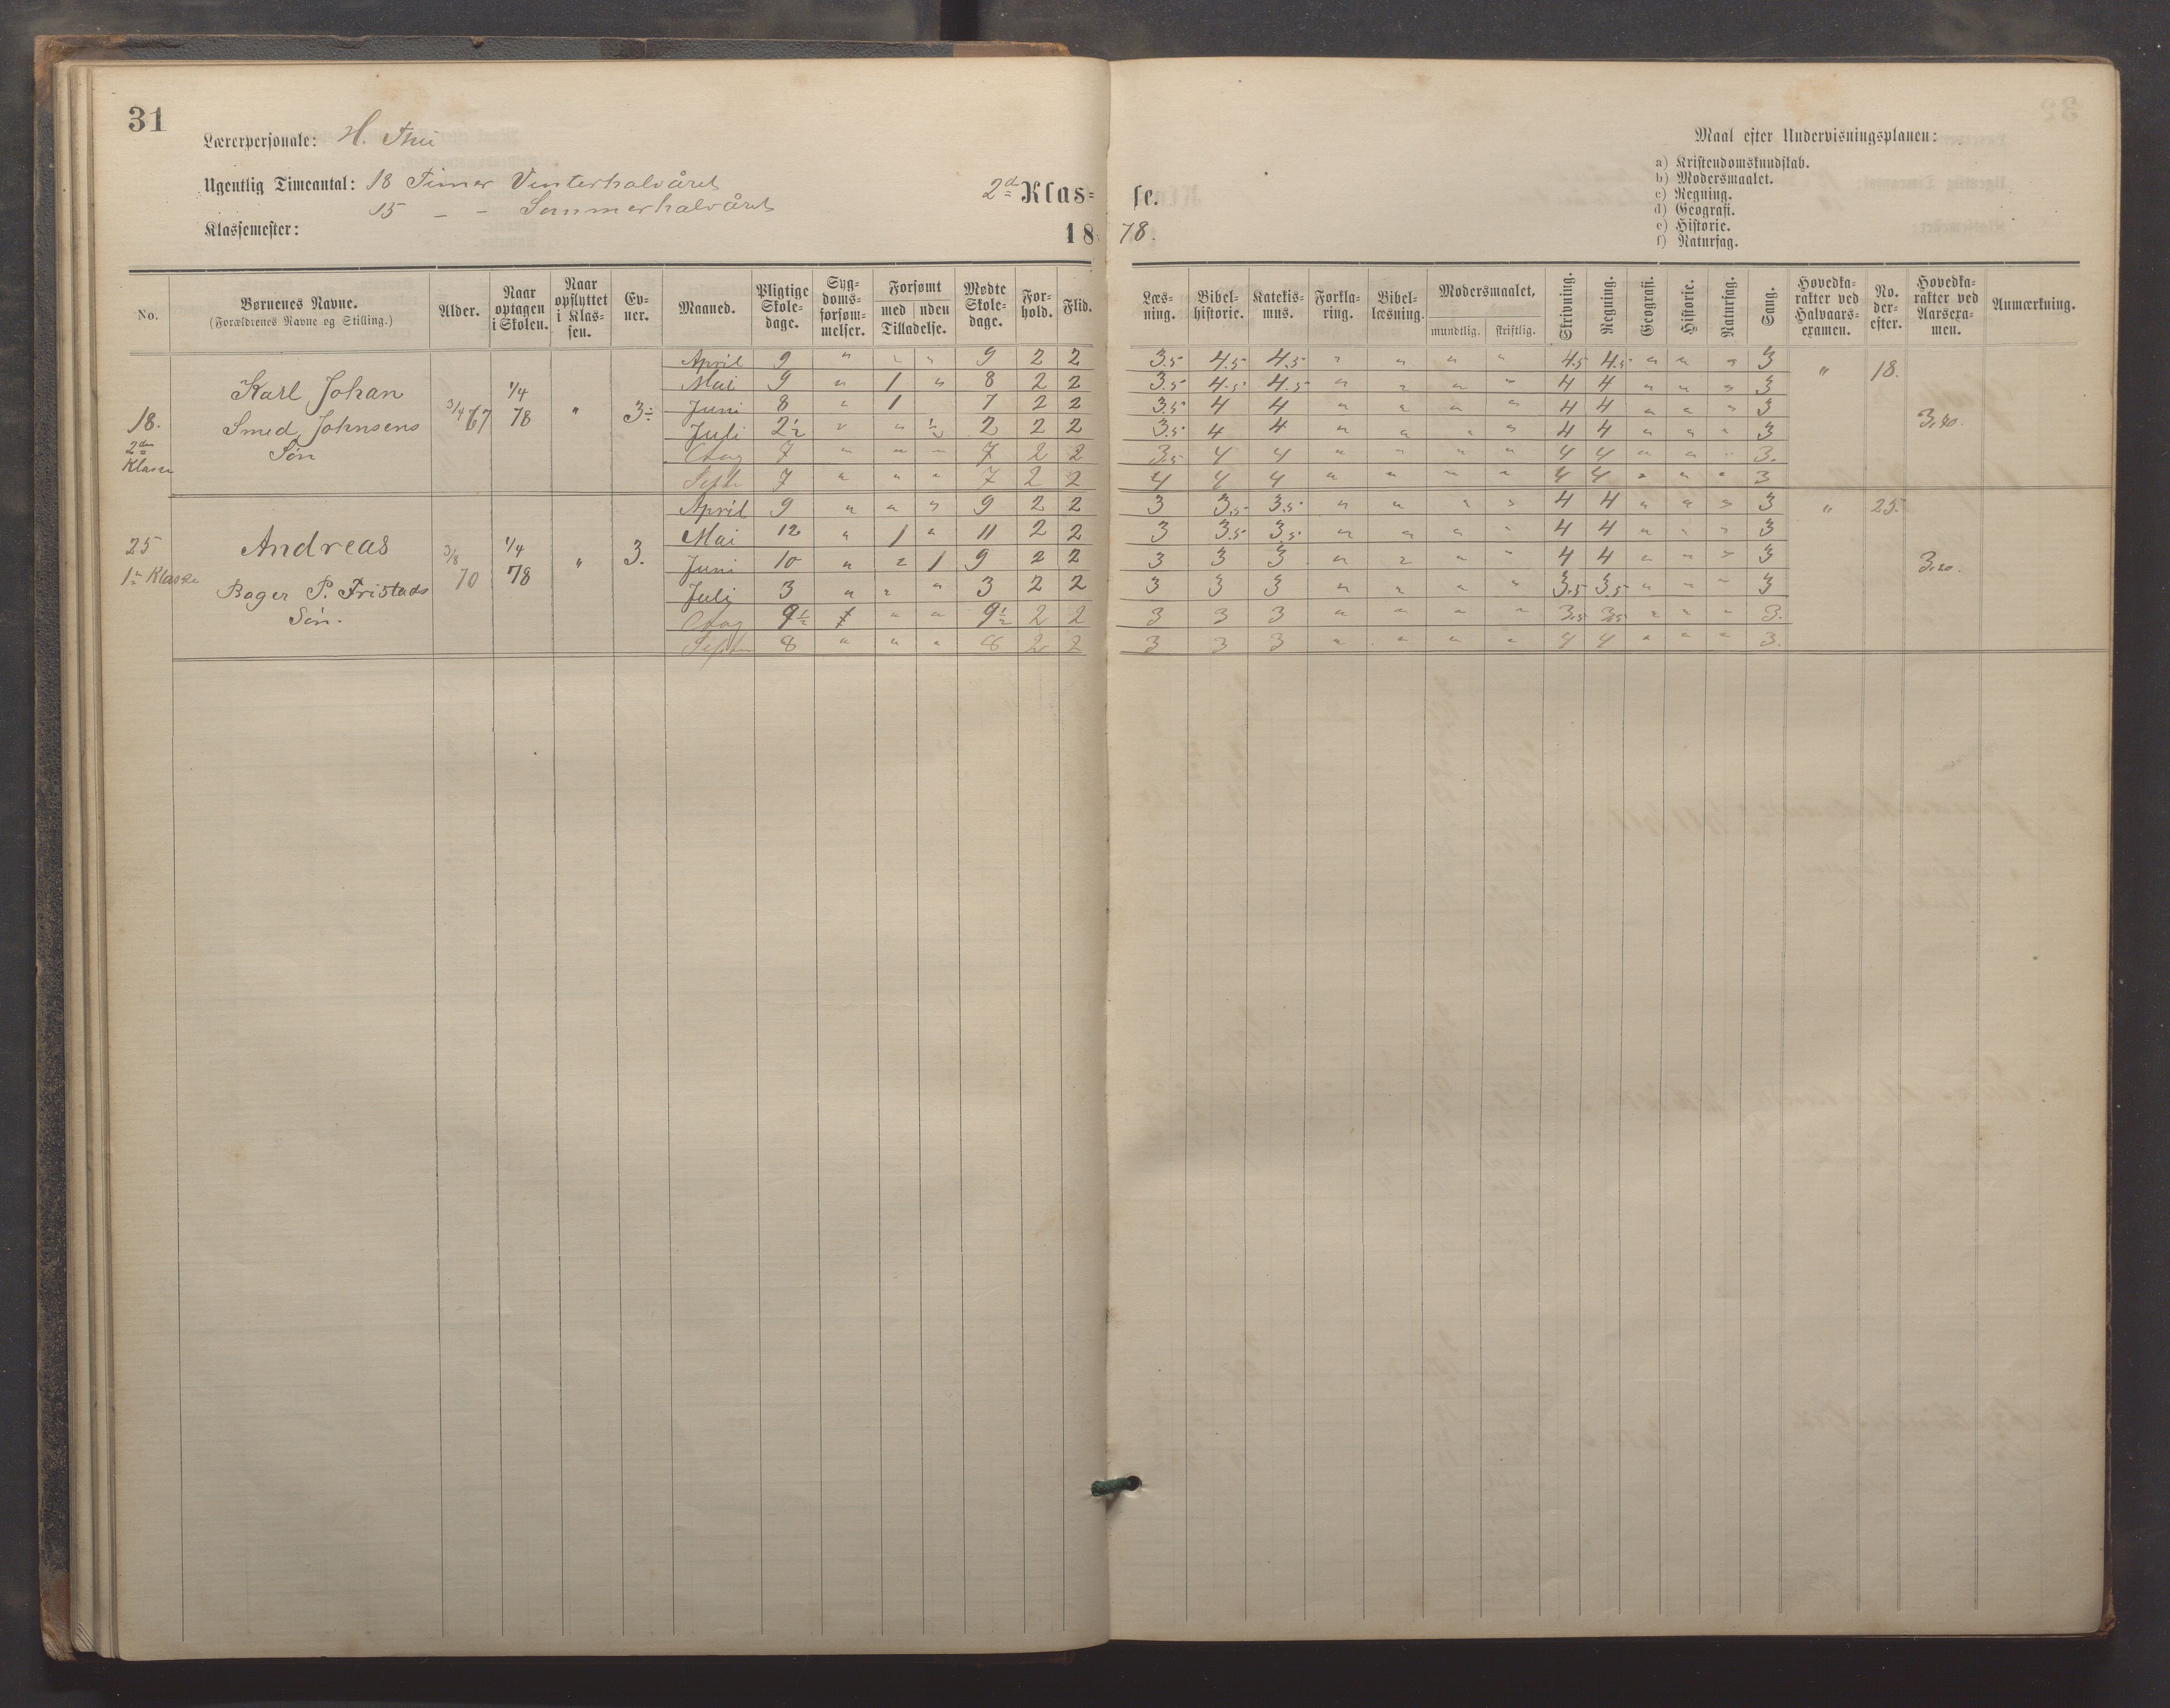 31
Lærerpersonale: H. Thu
Ugentlig Timeantal: 18 Timer Vinterhalvåret
15 – – Sommerhalvåret
Klassemester:
2d Klas= se.
18 78.
Maal efter Undervisningsplanen:
a) Kristendomskundskab.
b) Modersmaalet.
c) Regning.
d) Geografi.
e) Historie.
f) Naturfag.
No. | Børnenes Navne. (Forældrenes Navne og Stilling.) | Alder. | Naar optagen i Skolen. | Naar opflyttet i Klas-sen. | Ev-ner. | Maaned. | Pligtige Skole-dage. | Syg-doms-forsøm-melser. | Forsømt med uden Tilladelse. | Mødte Skole-dage. | For-hold. | Flid. | Læs-ning. | Bibel-historie. | Katekis-mus. | Forkla-ring. | Bibel-læsning. | Modersmaalet, mundtlig. skriftlig. | Skrivning. | Regning. | Geografi. | Historie. | Naturfag. | Sang. | Hovedka-rakter ved Halvaars-examen. | No. der-efter. | Hovedka-rakter ved Aarsexa-men. | Anmærkning.
18. 2den Klasse | Karl Johan Smed Johnsens Søn | 3/4 67 | 1/4 78 | " | 3÷
April 9 " " " 9 2 2 3.5 4.5 4.5 " " " " 4.5 4.5 " " " 3 " 18.
Mai 9 " 1 " 8 2 2 3.5 4.5 4.5 " " " " 4 4 " " " 3
Juni 8 " 1 7 2 2 3.5 4 4 " " " " 4 4 " " " 3
Juli 2½ " " ½ 2 2 2 3.5 4 4 " " " " 4 4 " " " 3
Aug 7 " " " 7 2 2 3.5 4 4 " " " " 4 4 " " " 3.
Septr 7 " " " 7 2 2 4 4 4 " " " " 4 4 " " " 3
25 1ste Klasse | Andreas Bager P. Fristads Søn. | 3/8 70 | 1/4 78 | " | 3.
April 9 " " " 9 2 2 3 3.5 3.5 " " " " 4 4 " " " 3 " 25.
Mai 12 " 1 " 11 2 2 3 3.5 3.5 " " " " 4 4 " " " 3
Juni 10 " " 1 9 2 2 3 3 3 " " " " 4 4 " " " 3
3,20.
Juli 3 " " " 3 2 2 3 3 3 " " " " 3.5 3.5 " " " 3
Aug 9½ " " 9½ 2 2 3 3 3 " " " " 3.5 3.5 " " " 3.
Septr 8 " " " 8 2 2 3 3 3 " " " " 4 4 " " " 3.